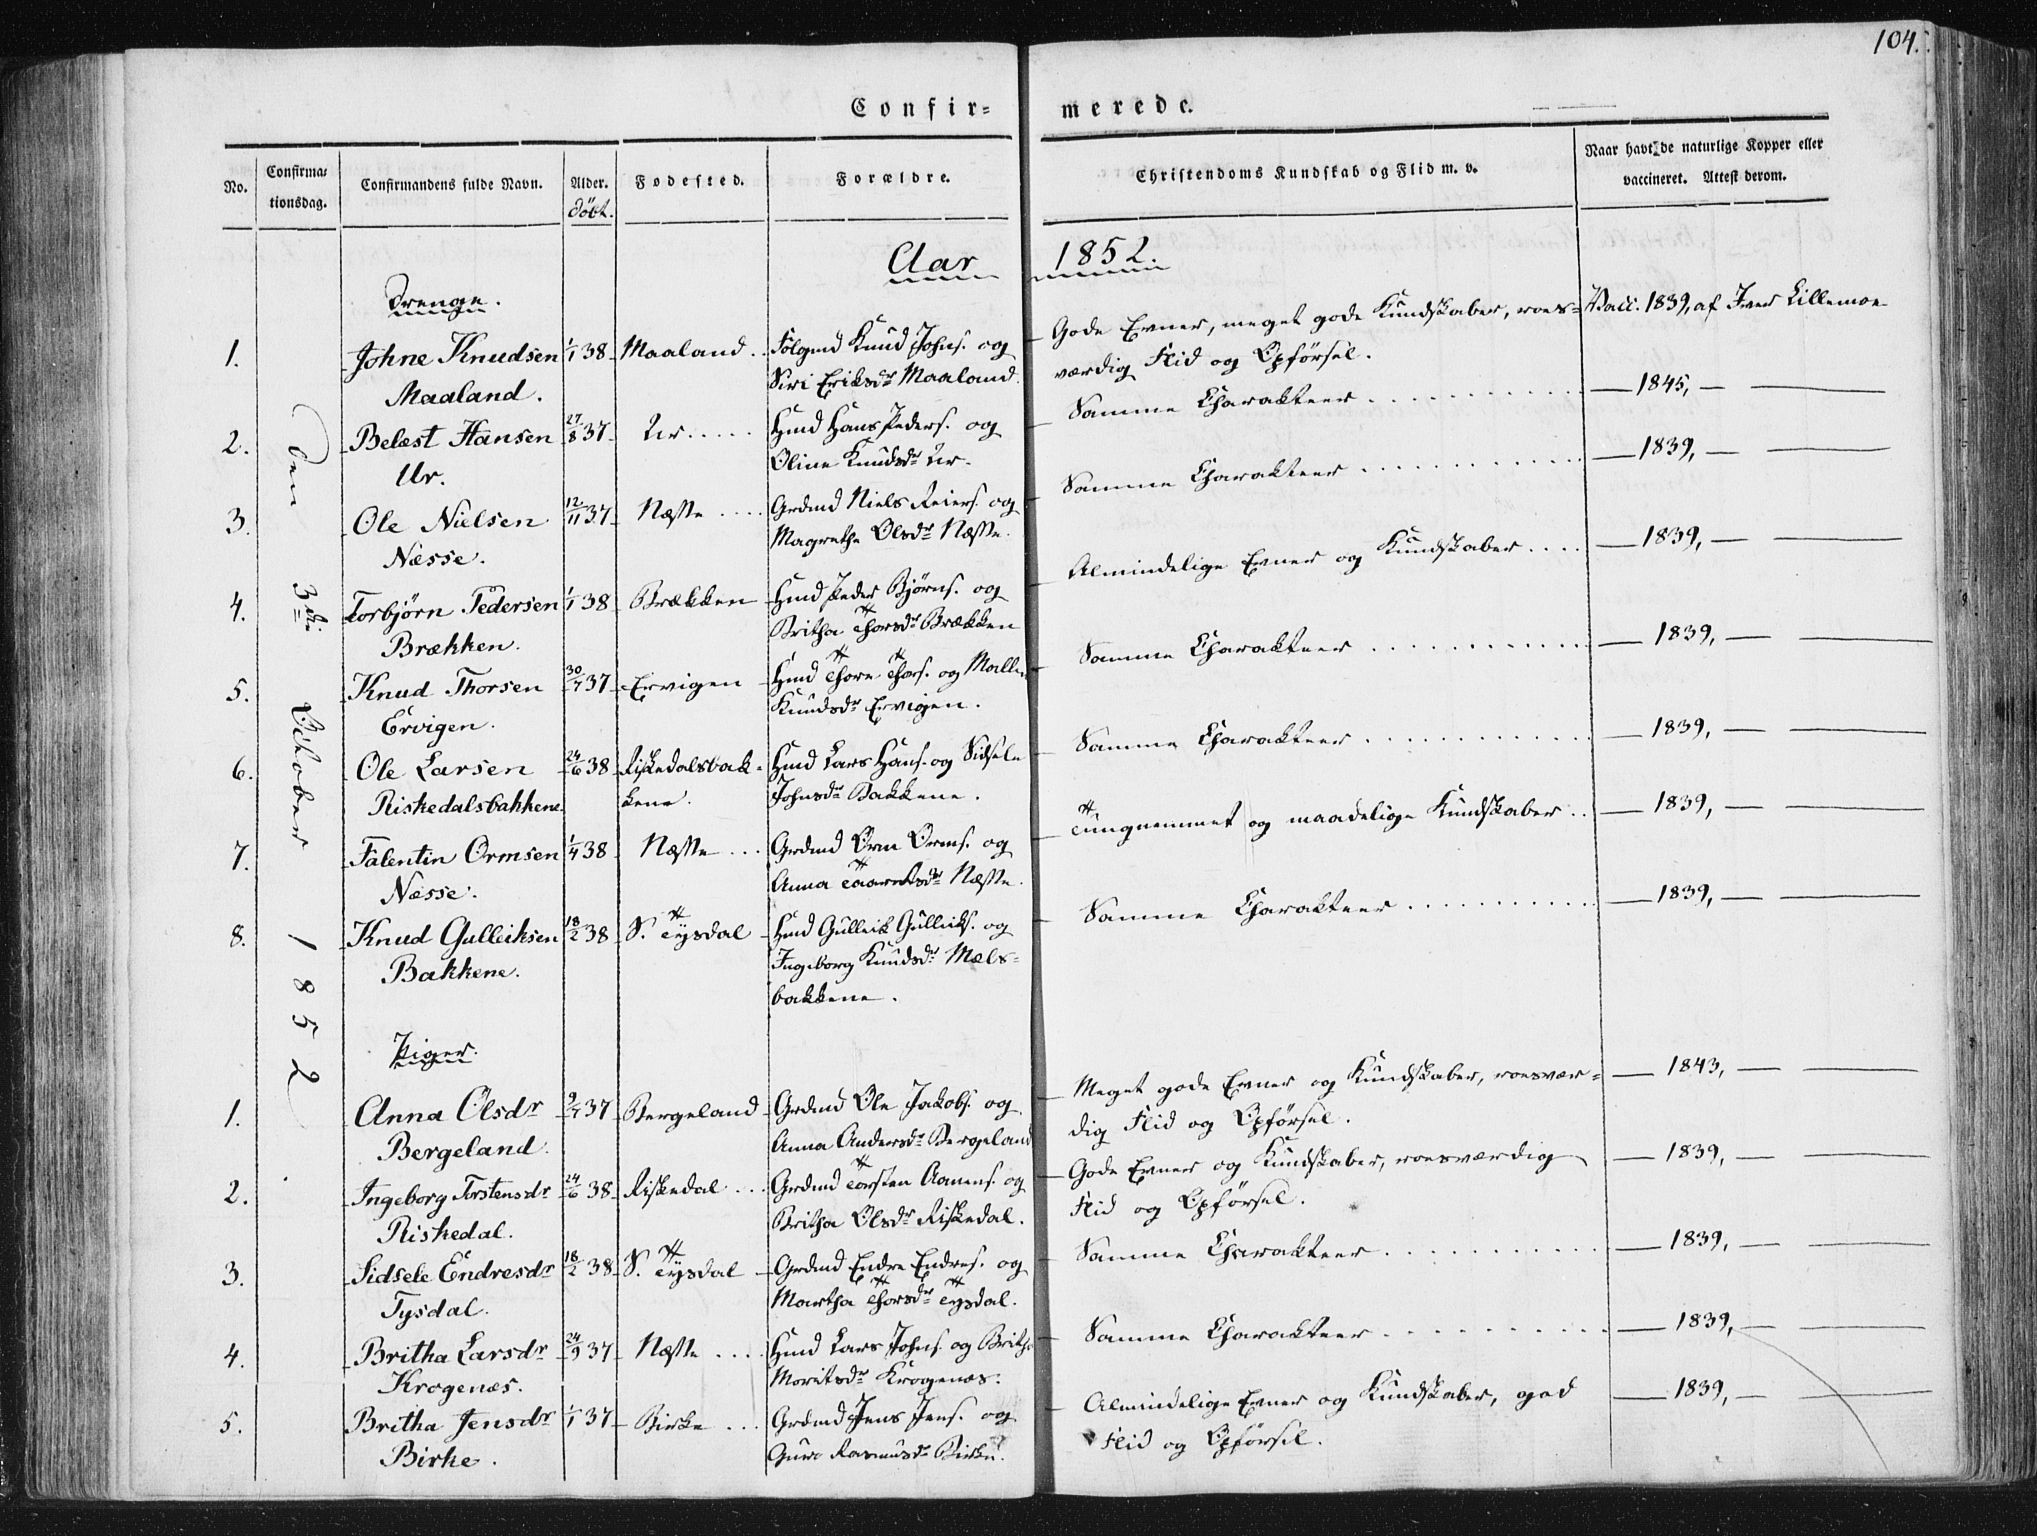 104.
Confir= merede.
No. Confirma= tionsdag. Confirmandens fulde Navn. Alder. døbt. Fødested. Forældre. Christendoms Kundskab og Flid m. v. Naar havt de naturlige Kopper eller vaccineret. Attest derom.
Aar 1852.
Den 3die October 1852
Drenge.
1. Johne Knudsen 1/1 38 Maaland.. Følgmd Knud Johns. og Gode Evner, meget gode Kundskaber, roes= Vacc. 1839, af Iver Lillemoe
Maaland. Siri Eriksdr Maaland. værdig Flid og Opførsel.
2. Belæst Hansen 27/8 37 Ur..... Hmd Hans Peders. og Samme Charakteer............ —1845,—
Ur. Oline Knudsdr Ur.
3. Ole Nielsen 12/11 37 Nesse.... Grdmd Niels Reiers. og Samme Charakteer............ —1839,—
Nesse. Magrethe Olsdr Nesse.
4. Torbjørn Pedersen 1/1 38 Brækken Hmd Peder Bjørns. og Almindelige Evner og Kundskaber.... —1839,—
Brækken. Britha Thorsdr Brækken
5. Knud Thorsen 30/7 37 Ervigen Hmd Thore Thors. og Malle Samme Charakteer............ —1839,—
Ervigen. Knudsdr Ervigen.
6. Ole Larsen 24/6 38 Riskedalsbak= Hmd Lars Hans. og Sidsele Samme Charakteer............ —1839,—
Riskedalsbakkene kene. Johnsdr Bakkene.
7. Falentin Ormsen 1/4 38 Nesse... Grdmd Orm Orms. og Tungnemmet og maadelige Kundskaber.. —1839,—
Nesse. Anna Nesse.
8. Knud Gulleiksen 18/2 38 S. Tysdal Hmd Gulleik Gulleiks. og Samme Charakteer........... —1839,—
Bakkene. Ingeborg Knudsdr Mæls=
bakkene.
Piger.
1. Anna Olsdr 9/7 37 Bergeland Grdmd Ole Jakobs. og Meget gode Evner og Kundskaber, roesvær= —1843,—
Bergeland. Anna Andersdr Bergeland dig Flid og Opførsel.
2. Ingeborg Torstensdr 24/6 38 Riskedal... Grdmd Torsten Aanens. og Gode Evner og Kundskaber, roesværdig —1839,—
Riskedal. Britha Olsdr Riskedal. Flid og Opførsel.
3. Sidsele Endresdr 18/2 38 S. Tysdal Grdmd Endre Endres. og Samme Charakteer........... —1839,—
Tysdal. Martha Thorsdr Tysdal.
4. Britha Larsdr 24/9 37 Nesse.... Hmd Lars Johns. og Britha Samme Charakteer........... —1839,—
Krogenæs. Moritsdr Krogenæs.
5. Britha Jensdr 1/1 37 Birke... Grdmd Jens Jens. og Almindelige Evner og Kundskaber, god —1839,—
Birke. Guro Rasmusdr Birke. Flid og Opførsel.